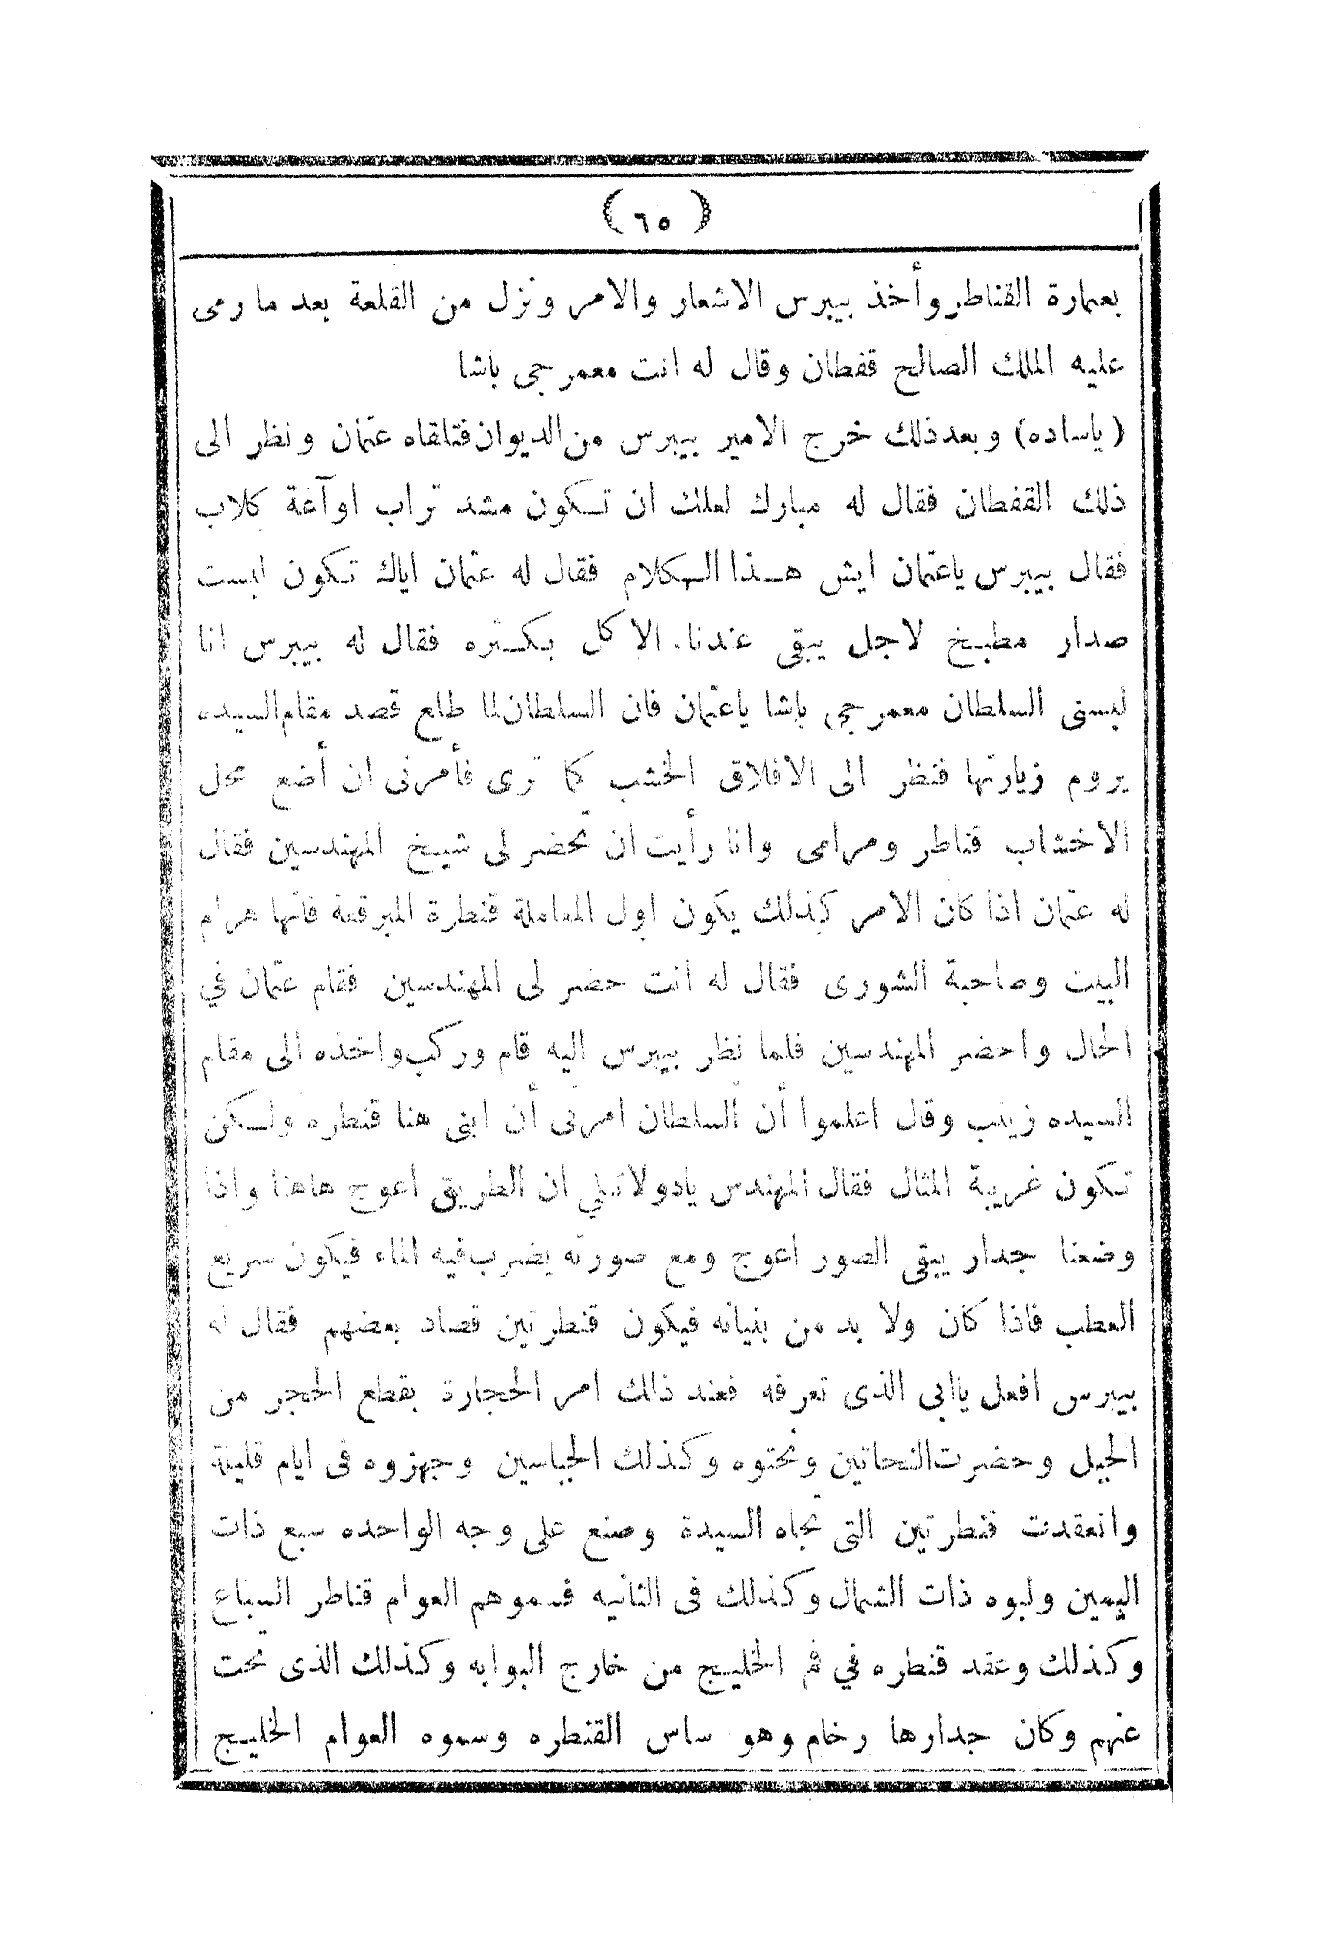 (٦٥)
بعمارة القناطر وأخذ بيبرس الاشعار والامر ونزل من القلعة بعد ما رمى
عليه الملك الصالح قفطان وقال له انت معمرجى باشا
(ياساده) وبعد ذلك خرج الامير بيبرس من الديوان فتلقاه عثمان ونظر الى
ذلك القفطان فقال له مبارك لعلك ان تكون مشد تراب اوآغة كلاب
فقال بيبرس ياعثمان ايش هذا الكلام فقال له عثمان اياك تكون لبست
صدار مطبخ لاجل يبقى عندنا الاكل بكثره فقال له بيبرس انا
لبسنى السلطان معمرجى باشا ياعثمان فان السلطان لما طلع قصد مقام السيده
يروم زيارتها فنظر الى الافلاق الخشب كما ترى فأمرنى ان أضع محل
الاخشاب قناطر ومرامى وانا رأيت ان تحضر لى شيخ المهندسين فقال
له عثمان اذا كان الامر كذلك يكون اول المعاملة قنطرة المبرقعة فانها هرام
البيت وصاحبة الشورى فقال له انت حضر لى المهندسين فقام عثمان في
الحال واحضر المهندسين فلما نظر بيبرس اليه قام وركب واخذه الى مقام
السيده زينب وقال اعلموا أن السلطان امرنى أن ابنى هنا قنطره ولكن
تكون غريبة المثال فقال المهندس يادولاتلي ان الطريق اعوج هاهنا واذا
وضعنا جدار يبقى الصور اعوج ومع صورته يضرب فيه الماء فيكون سريع
العطب فاذا كان ولا بد من بنيانه فيكون قنطرتين قصاد بعضهم فقال له
بيبرس افعل ياابى الذى تعرفه فعند ذالك امر الحجارة بقطع الحجر من
الجبل وحضرت النحاتين ونحتوه وكذلك الجباسين وجهزوه فى ايام قليلة
وانعقدت قنطرتين التى تجاه السيدة وصنع على وجه الواحده سبع ذات
اليمين ولبوه ذات الشمال وكذلك فى الثانيه فسموهم العوام قناطر السباع
وكذلك وعقد قنطره في فم الخليج من خارج البوابه وكذلك الذى تحت
عنهم وكان جدارها رخام وهو ساس القنطره وسموه العوام الخليج